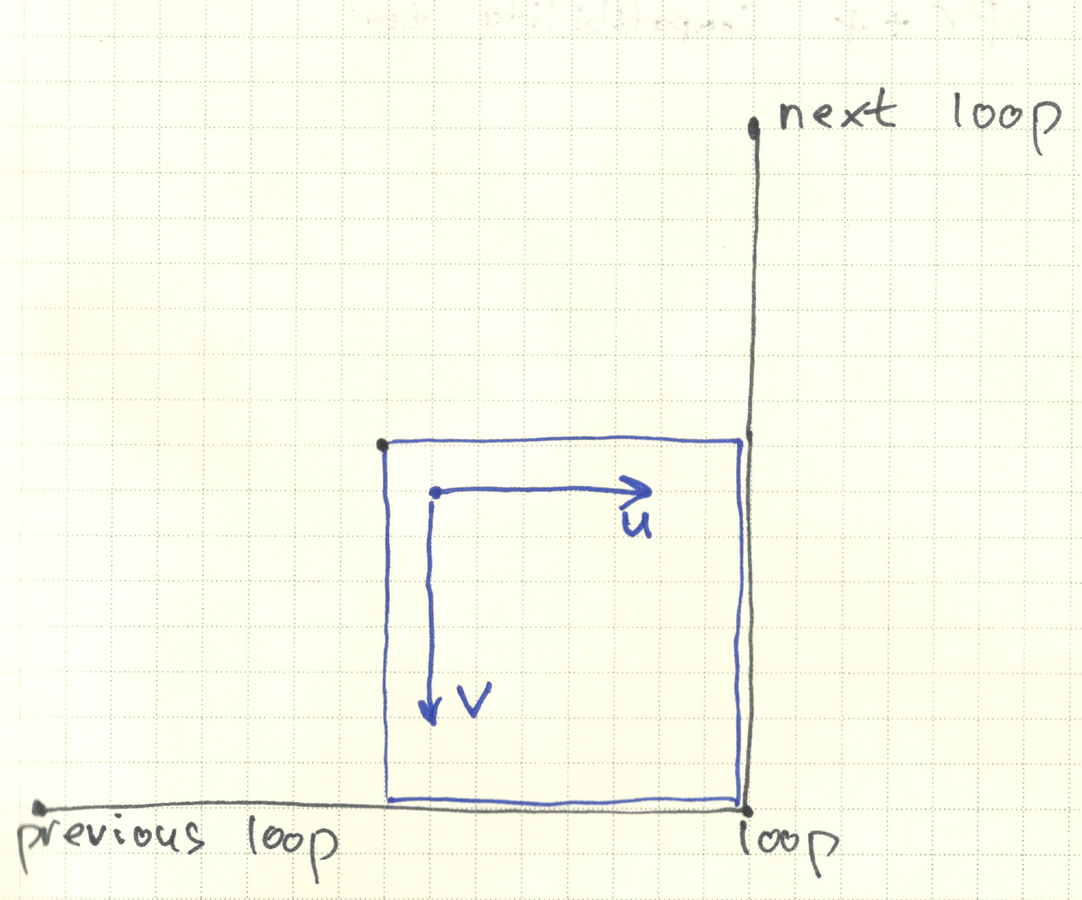 next loop
u
v
previous loop
loop